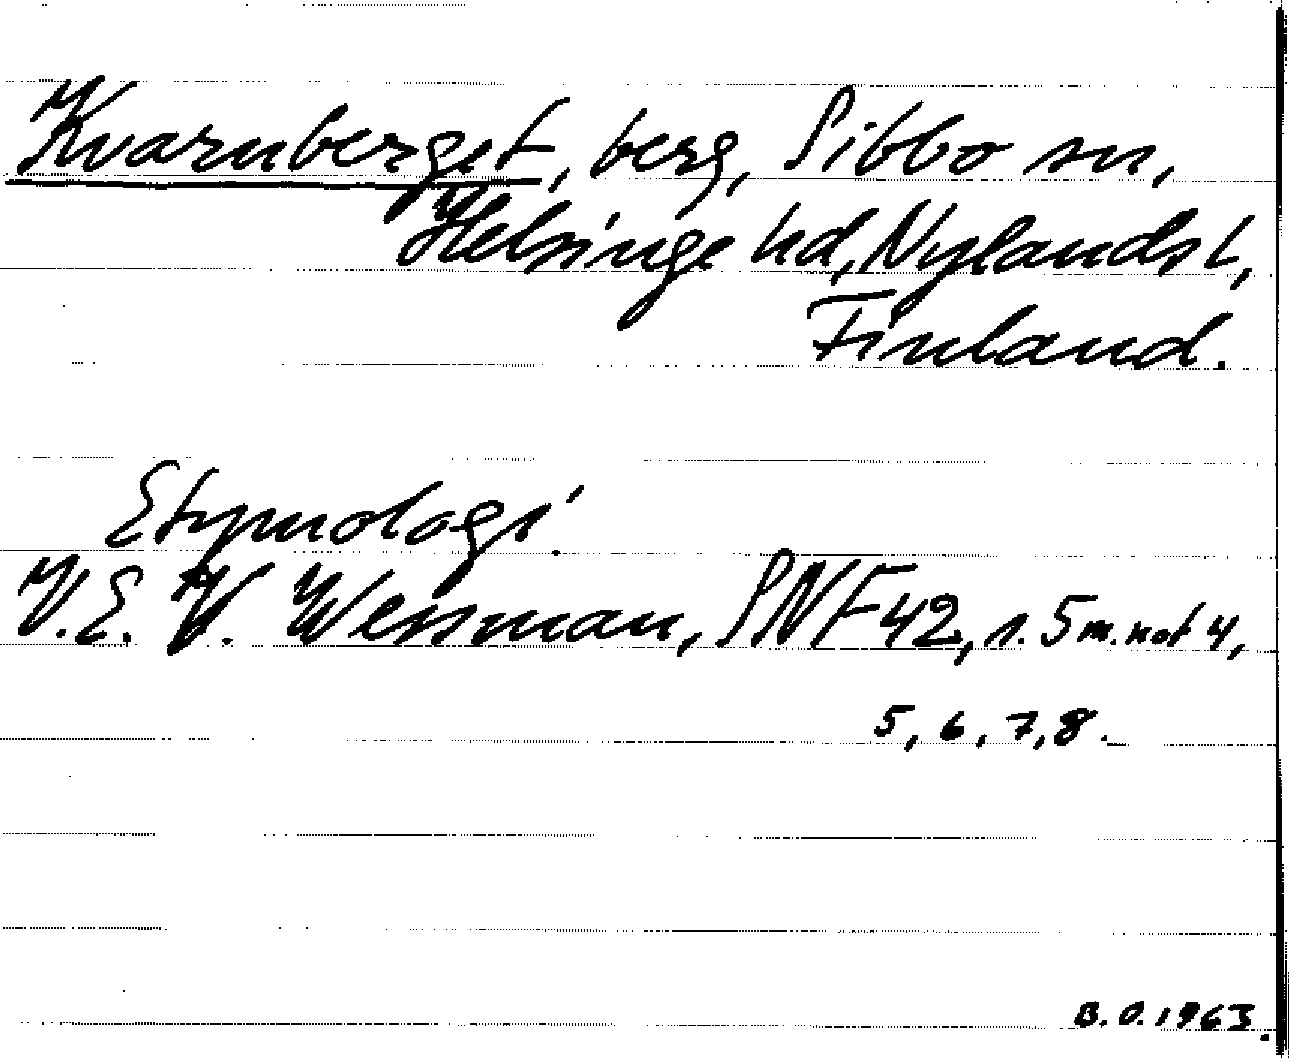 Kvarnberget, berg, Sibbo sn,
Helsinge hd, Nylands l,
Finland.
Etymologi.
V.E.V. Wessman, SNF 42, s. 5 m. not 4,
5, 6, 7, 8.
B.O. 1963.